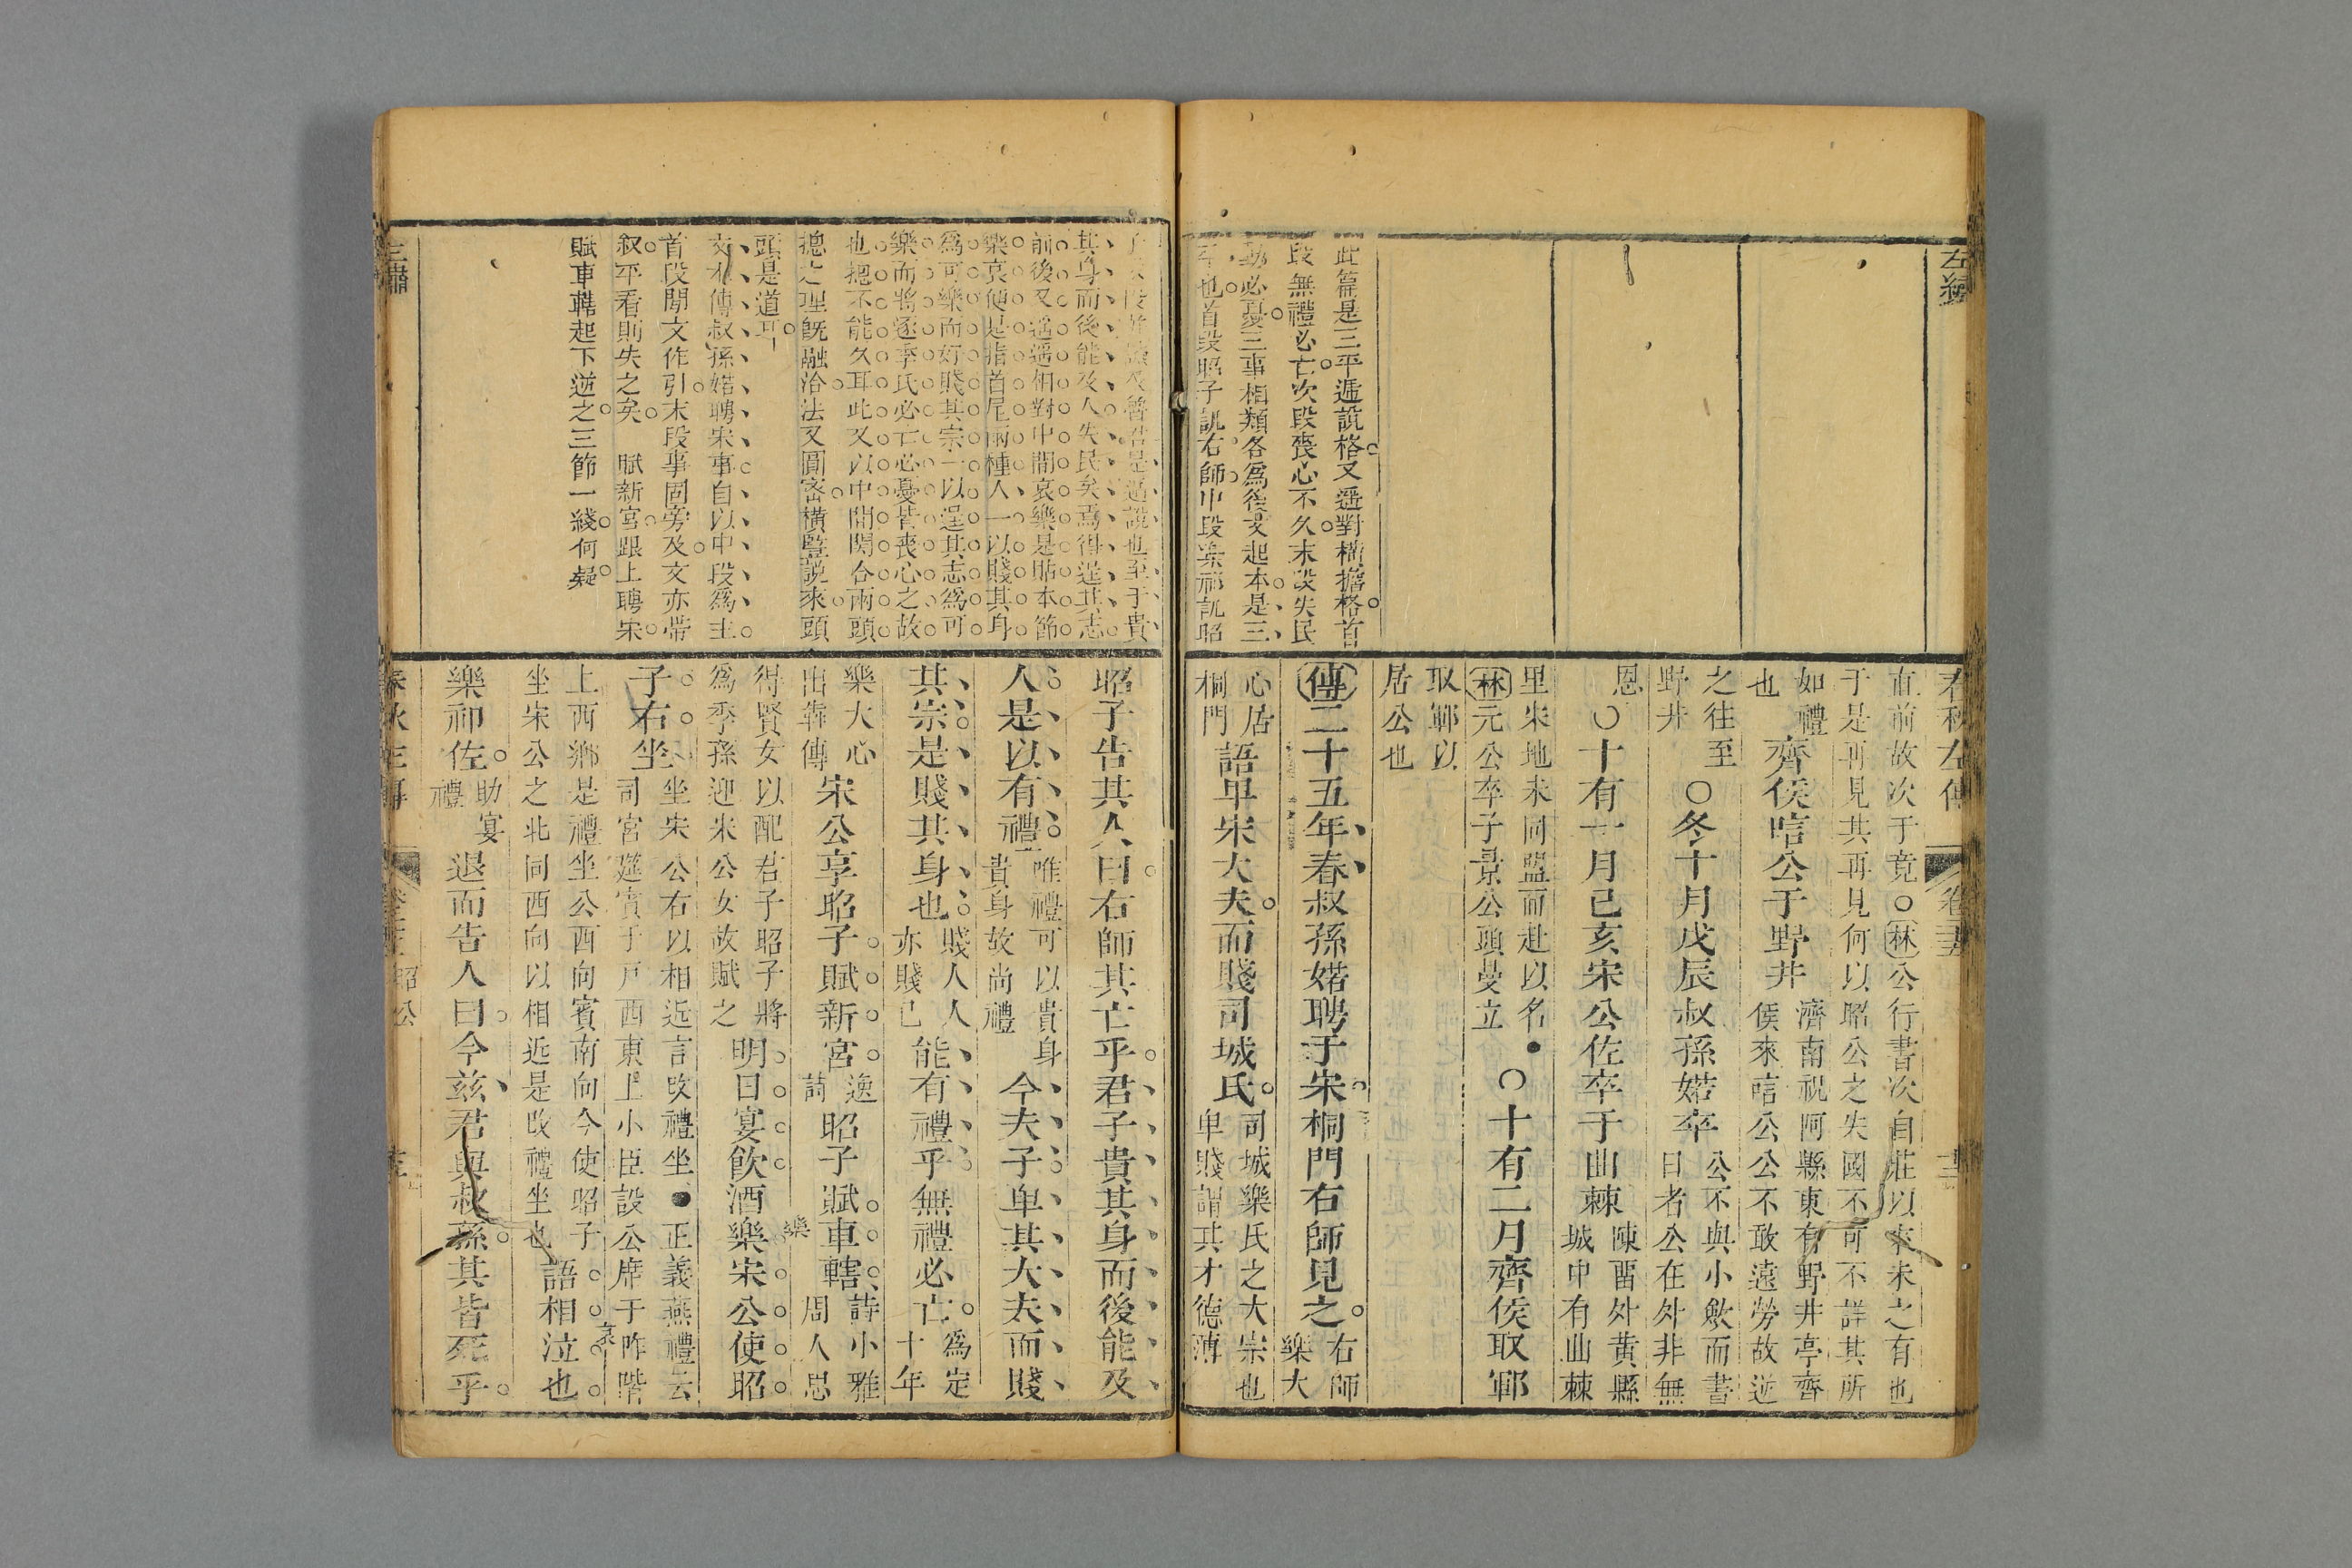 左繡
此篇是三平遞說格又遥對橫擔格首
段無禮必亡次段喪心不久末段失民
動必憂三事相類各爲後文起本是三
平也首段昭子說右師中段樂祁說昭
春秋左傳
卷
直前故次于竟○林公行書次自莊以來未之有也
于是再見其再見何以昭公之失國不可不詳其所
如禮
也
齊侯唁公于野井
濟南祝阿縣東有野井亭齊
侯來唁公公不敢遠勞故逆
之往至
野井
○冬十月戊辰叔孫婼卒
公不與小斂而書
日者公在外非無
恩
○十有一月己亥宋公佐卒于曲棘
陳留外黃縣
城中有曲棘
里宋地未同盟而赴以名●
林元公卒子景公頭曼立
○十有二月齊侯取鄆
取鄆以
居公也
傳二十五年春叔孫婼聘于宋桐門右師見之
右師
樂大
心居
桐門
語卑宋大夫而賤司城氏
司城樂氏之大宗也
卑賤謂其才德薄
其身而後能及人失民矣焉得逞其志
前後又遥遥相對中間哀樂是貼本節
樂哀便是指首尾兩種人一以賤其身
爲可樂而好賤其宗一以逞其志爲可
樂而將逐季氏必亡必憂皆喪心之故
也摠不能久耳此又以中間關合兩頭
摠之理旣融洽法又圓密橫豎説來頭
頭是道耳
文本傳叔孫婼聘宋事自以中段爲主
首段開文作引末段事固旁及文亦帶
叙平看則失之矣 賦新宮跟上聘宋
賦車轄起下逆之三節一綫何疑
昭子告其人曰右師其亡乎君子貴其身而後能及
人是以有禮
唯禮可以貴身
貴身故尚禮
今夫子卑其大夫而賤
其宗是賤其身也
賤人人
亦賤己
能有禮乎無禮必亡
爲定
十年
樂大心
出奔傳
宋公享昭子賦新宮
逸
詩
昭子賦車轄
詩小雅
周人思
得賢女以配君子昭子將
爲季孫迎宋公女故賦之
明日宴飲酒樂宋公使昭
樂
子右坐
坐宋公右以相近言改禮坐●正義燕禮云
司宮筵賓于戶西東上小臣設公席于阼階
上西鄉是禮坐公西向賓南向今使昭子
坐宋公之北同西向以相近是改禮坐也
語相泣也
樂祁佐
助宴
禮
退而告人曰今茲君與叔孫其皆死乎
春秋左傳
昭公